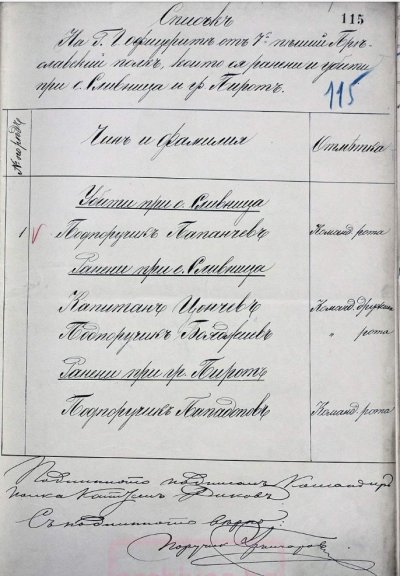 115
Списъкъ
На Г. Г. офицеритѣ отъ 7й пѣший Прѣс-
лавский полкъ, които ся ранени и убити
при с. Сливница и гр. Пиротъ.
115
№ по редъ
Чинъ и фамилия
Отмѣтка
Убити при с. Сливница
1 Подпоручикъ Папанчевъ Команд. рота
Ранени при с. Сливница
Капитанъ Цончевъ Команд. дружина
Подпоручикъ " рота
Ранени при гр. Пиротъ
Подпоручикъ Команд. рота
Подлинното подписалъ Командиръ
полка Капитанъ
Съ подлинното вѣрно:
Поручикъ